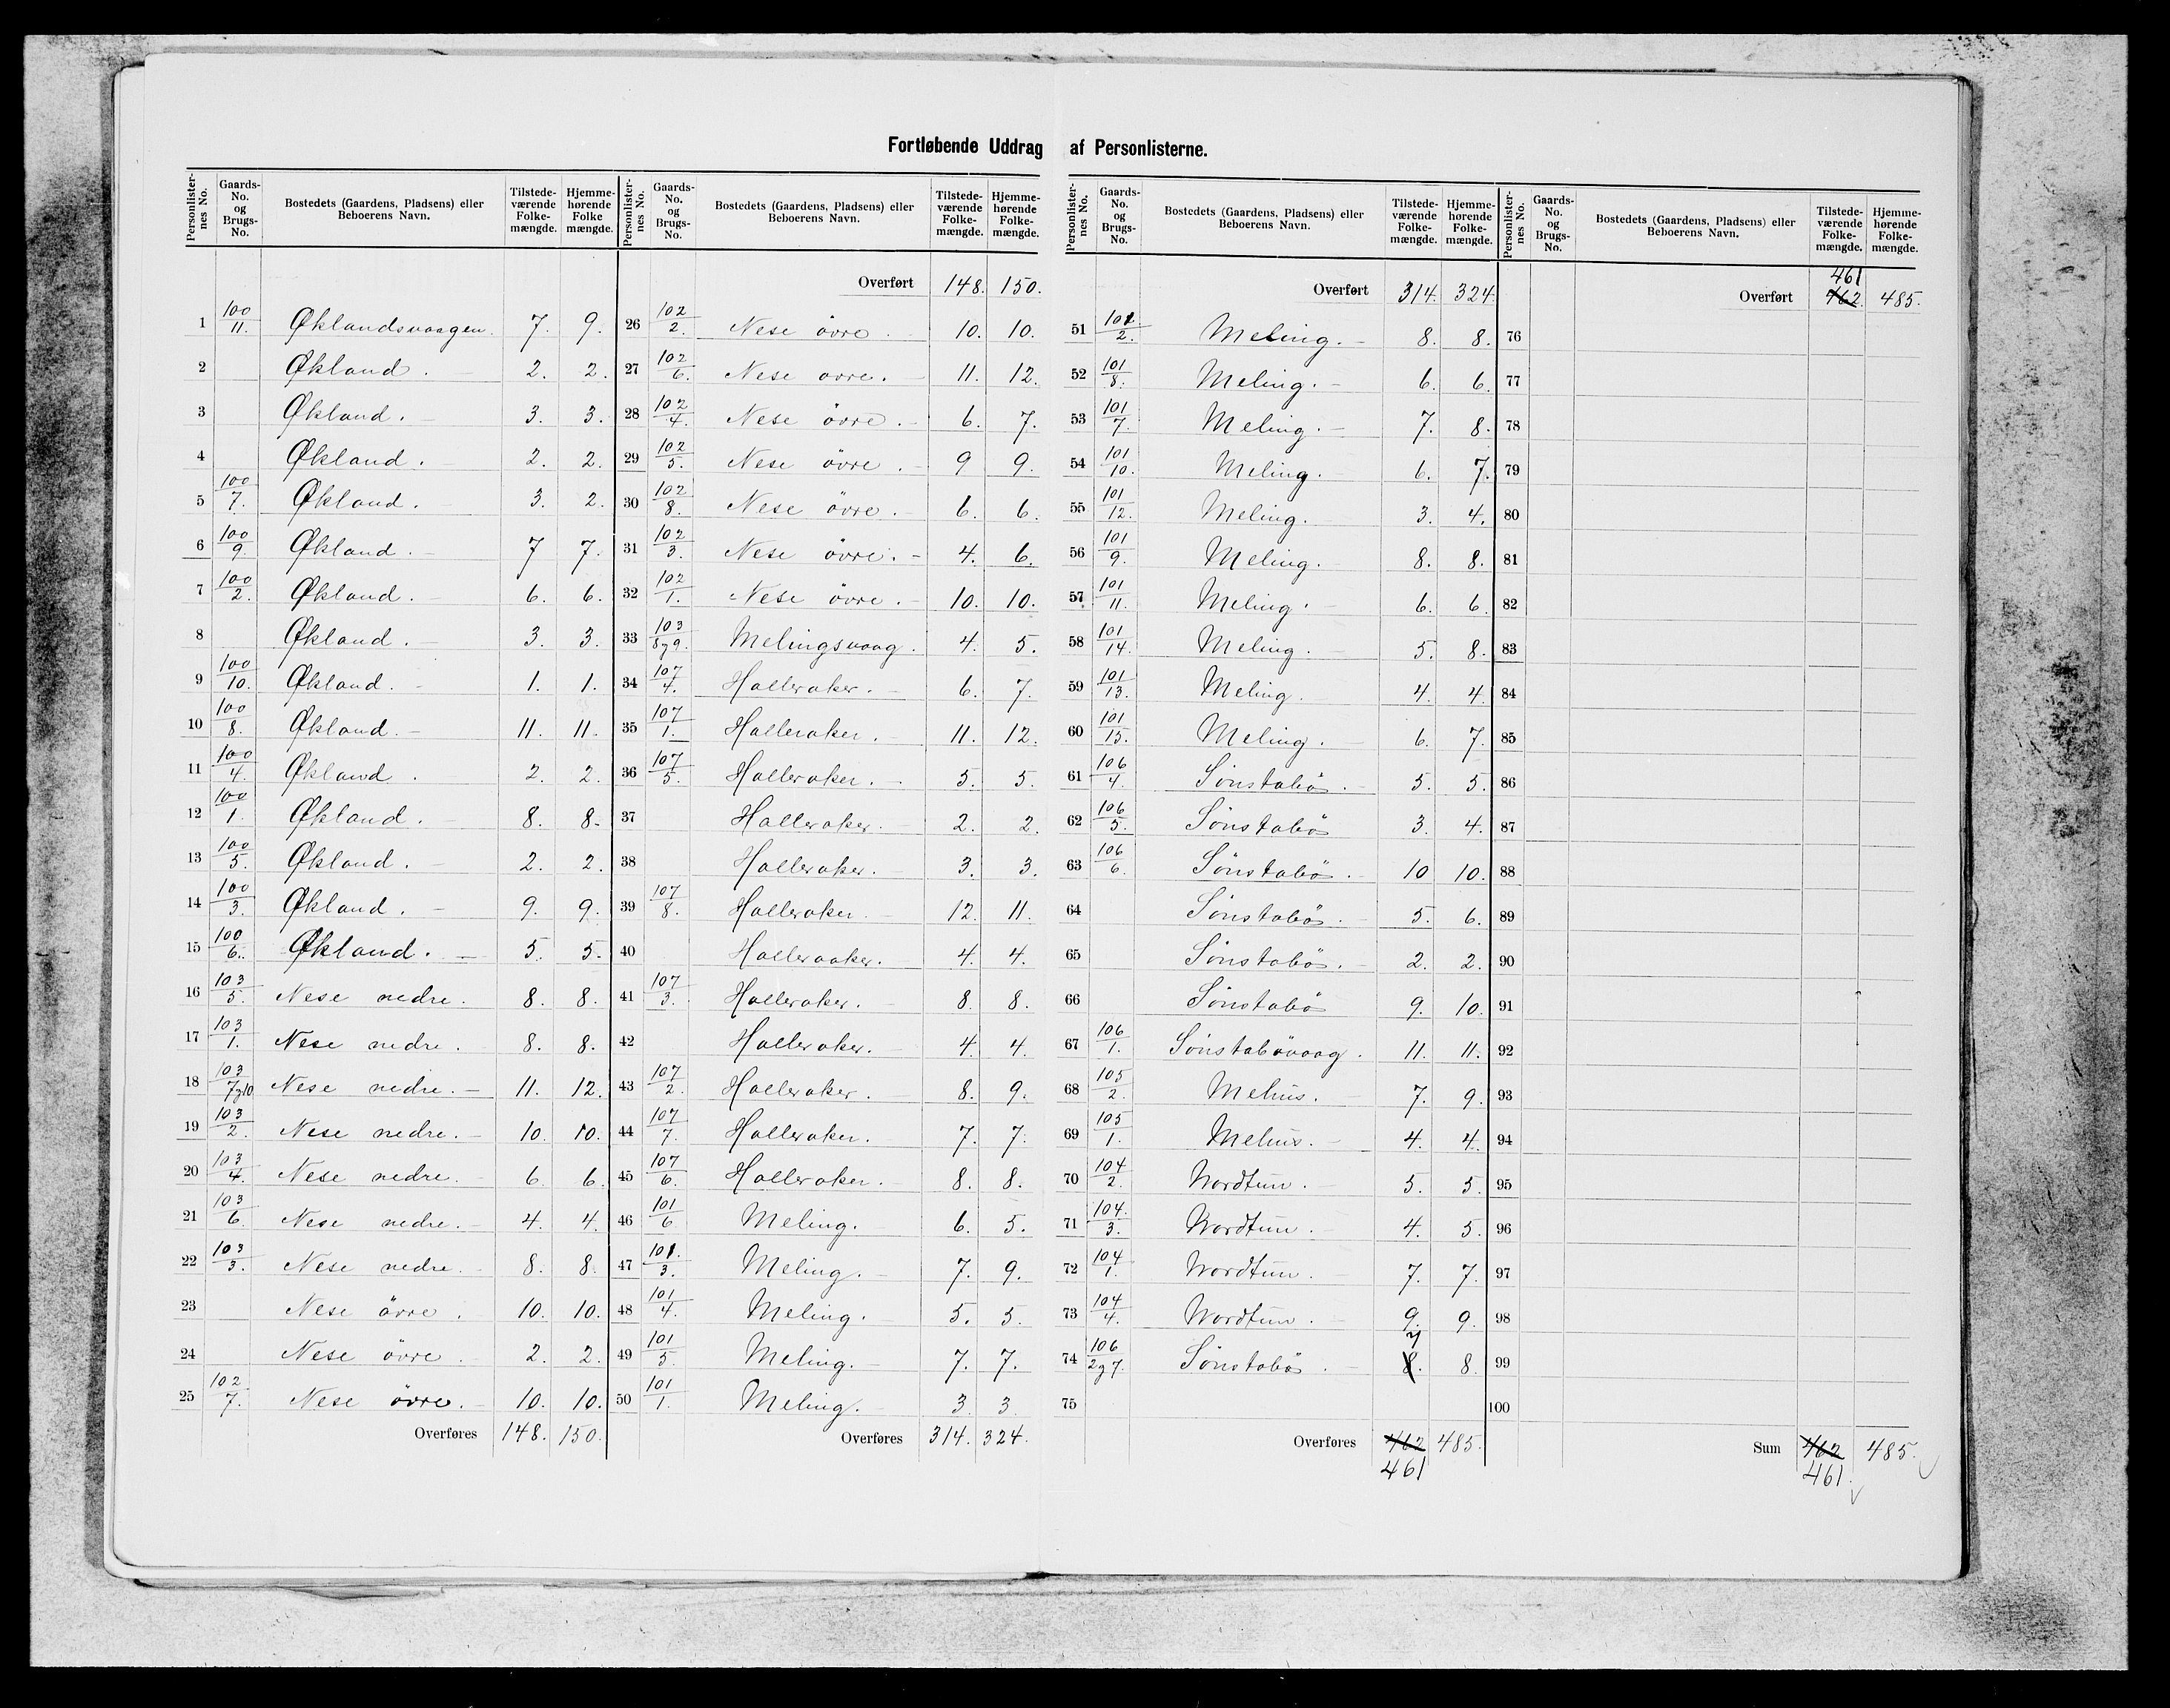 Fortløbende Uddrag af Personlisterne.
Personlisternes No. | Gaards-No. og Brugs-No. | Bostedets (Gaardens, Pladsens) eller Beboerens Navn. | Tilstedeværende Folkemængde. | Hjemmehørende Folkemængde.
1 | 100/11. | Øklandsvaagen. | 7. | 9.
2 | | Økland. - | 2. | 2.
3 | | Økland. - | 3. | 3.
4 | | Økland. - | 2. | 2.
5 | 100/7. | Økland. - | 3. | 2.
6 | 100/9. | Økland. - | 7 | 7.
7 | 100/2. | Økland. - | 6. | 6.
8 | | Økland. - | 3. | 3.
9 | 100/10. | Økland. - | 1. | 1.
10 | 100/8. | Økland. - | 11. | 11.
11 | 100/4. | Økland. | 2. | 2.
12 | 100/1. | Økland. - | 8. | 8.
13 | 100/5. | Økland. - | 2. | 2.
14 | 100/3. | Økland. - | 9. | 9.
15 | 100/6. | Økland. - | 5. | 5.
16 | 103/5. | Nese nedre. | 8. | 8.
17 | 103/1. | Nese nedre. | 8. | 8.
18 | 103/7og10 | Nese nedre. - | 11. | 12.
19 | 103/2. | Nese nedre. - | 10. | 10.
20 | 103/4. | Nese nedre. - | 6. | 6.
21 | 103/6. | Nese nedre. - | 4. | 4.
22 | 103/3. | Nese nedre. - | 8. | 8.
23 | | Nese övre. | 10. | 10.
24 | | Nese övre. | 2. | 2.
25 | 102/7. | Nese övre. - | 10. | 10.
Overføres | 148. | 150.
Personlisternes No. | Gaards-No. og Brugs-No. | Bostedets (Gaardens, Pladsens) eller Beboerens Navn. | Tilstedeværende Folkemængde. | Hjemmehørende Folkemængde.
Overført | 148. | 150.
26 | 102/2. | Nese övre. | 10. | 10.
27 | 102/6. | Nese ovre. - | 11. | 12.
28 | 102/4. | Nese övre. - | 6. | 7.
29 | 102/5. | Nese övre. - | 9 | 9.
30 | 102/8. | Nese övre. - | 6. | 6.
31 | 102/3. | Nese övre. - | 4. | 6.
32 | 102/1. | Nese övre. - | 10. | 10.
33 | 103/8og9. | Melingsvaag. | 4. | 5.
34 | 107/4. | Halleraker. - | 6. | 7.
35 | 107/1. | Halleraker. - | 11. | 12.
36 | 107/5. | Halleraker. - | 5. | 5.
37 | | Halleraker. - | 2. | 2.
38 | | Halleraker. - | 3. | 3.
39 | 107/8. | Halleraker. - | 12. | 11.
40 | | Halleraaker. - | 4. | 4.
41 | 107/3. | Halleraker. - | 8. | 8.
42 | | Halleraker. - | 4. | 4.
43 | 107/2. | Halleraker. - | 8. | 9.
44 | 107/7. | Halleraker. - | 7. | 7.
45 | 107/6. | Halleraker. - | 8. | 8.
46 | 101/6. | Meling. - | 6. | 5.
47 | 101./3. | Meling. - | 7. | 9.
48 | 101/4. | Meling. - | 5. | 5.
49 | 101/5. | Meling. - | 7. | 7.
50 | 101/1. | Meling. - | 3. | 3
Overføres | 314. | 324.
Personlisternes No. | Gaards-No. og Brugs-No. | Bostedets (Gaardens, Pladsens) eller Beboerens Navn. | Tilstedeværende Folkemængde. | Hjemmehørende Folkemængde.
Overført | 314. | 324.
51 | 101/2. | Meling. - | 8. | 8.
52 | 101/8. | Meling. - | 6. | 6.
53 | 101/7. | Meling. - | 7. | 8.
54 | 101/10. | Meling. | 6. | 7.
55 | 101/12. | Meling. - | 3. | 4.
56 | 101/9. | Meling. - | 8. | 8.
57 | 101/11. | Meling. - | 6. | 6.
58 | 101/14. | Meling. - | 5. | 8.
59 | 101/13. | Meling. - | 4. | 4.
60 | 101/15. | Meling. - | 6. | 7.
61 | 106/4. | Sönstabö. - | 5. | 5.
62 | 106/5. | Sönstabö | 3. | 4.
63 | 106/6. | Sönstabö. - | 10 | 10.
64 | | Sönstabö. - | 5. | 6.
65 | | Sönstabö. - | 2. | 2.
66 | | Sönstabö | 9. | 10.
67 | 106/1. | Sönstabövaag. | 11. | 11.
68 | 105/2. | Mehus. - | 7. | 9.
69 | 105/1. | Mehus. - | 4. | 4.
70 | 104/2. | Nordtun. - | 5. | 5.
71 | 104./3. | Nordtun. - | 4. | 5.
72 | 104/1. | Nordtun. - | 7. | 7.
73 | 104/4. | Nordtun. - | 9. | 9.
74 | 106/2og7. | Sönstabö. - | 8. 7 | 8.
75
Overføres | 462 | 485.
461
Personlisternes No. | Gaards-No. og Brugs-No. | Bostedets (Gaardens, Pladsens) eller Beboerens Navn. | Tilstedeværende Folkemængde. | Hjemmehørende Folkemængde.
461
Overført | 462. | 485.
76
77
78
79
80
81
82
83
84
85
86
87
88
89
90
91
92
93
94
95
96
97
98
99
100
Sum | 462 | 485.
461.